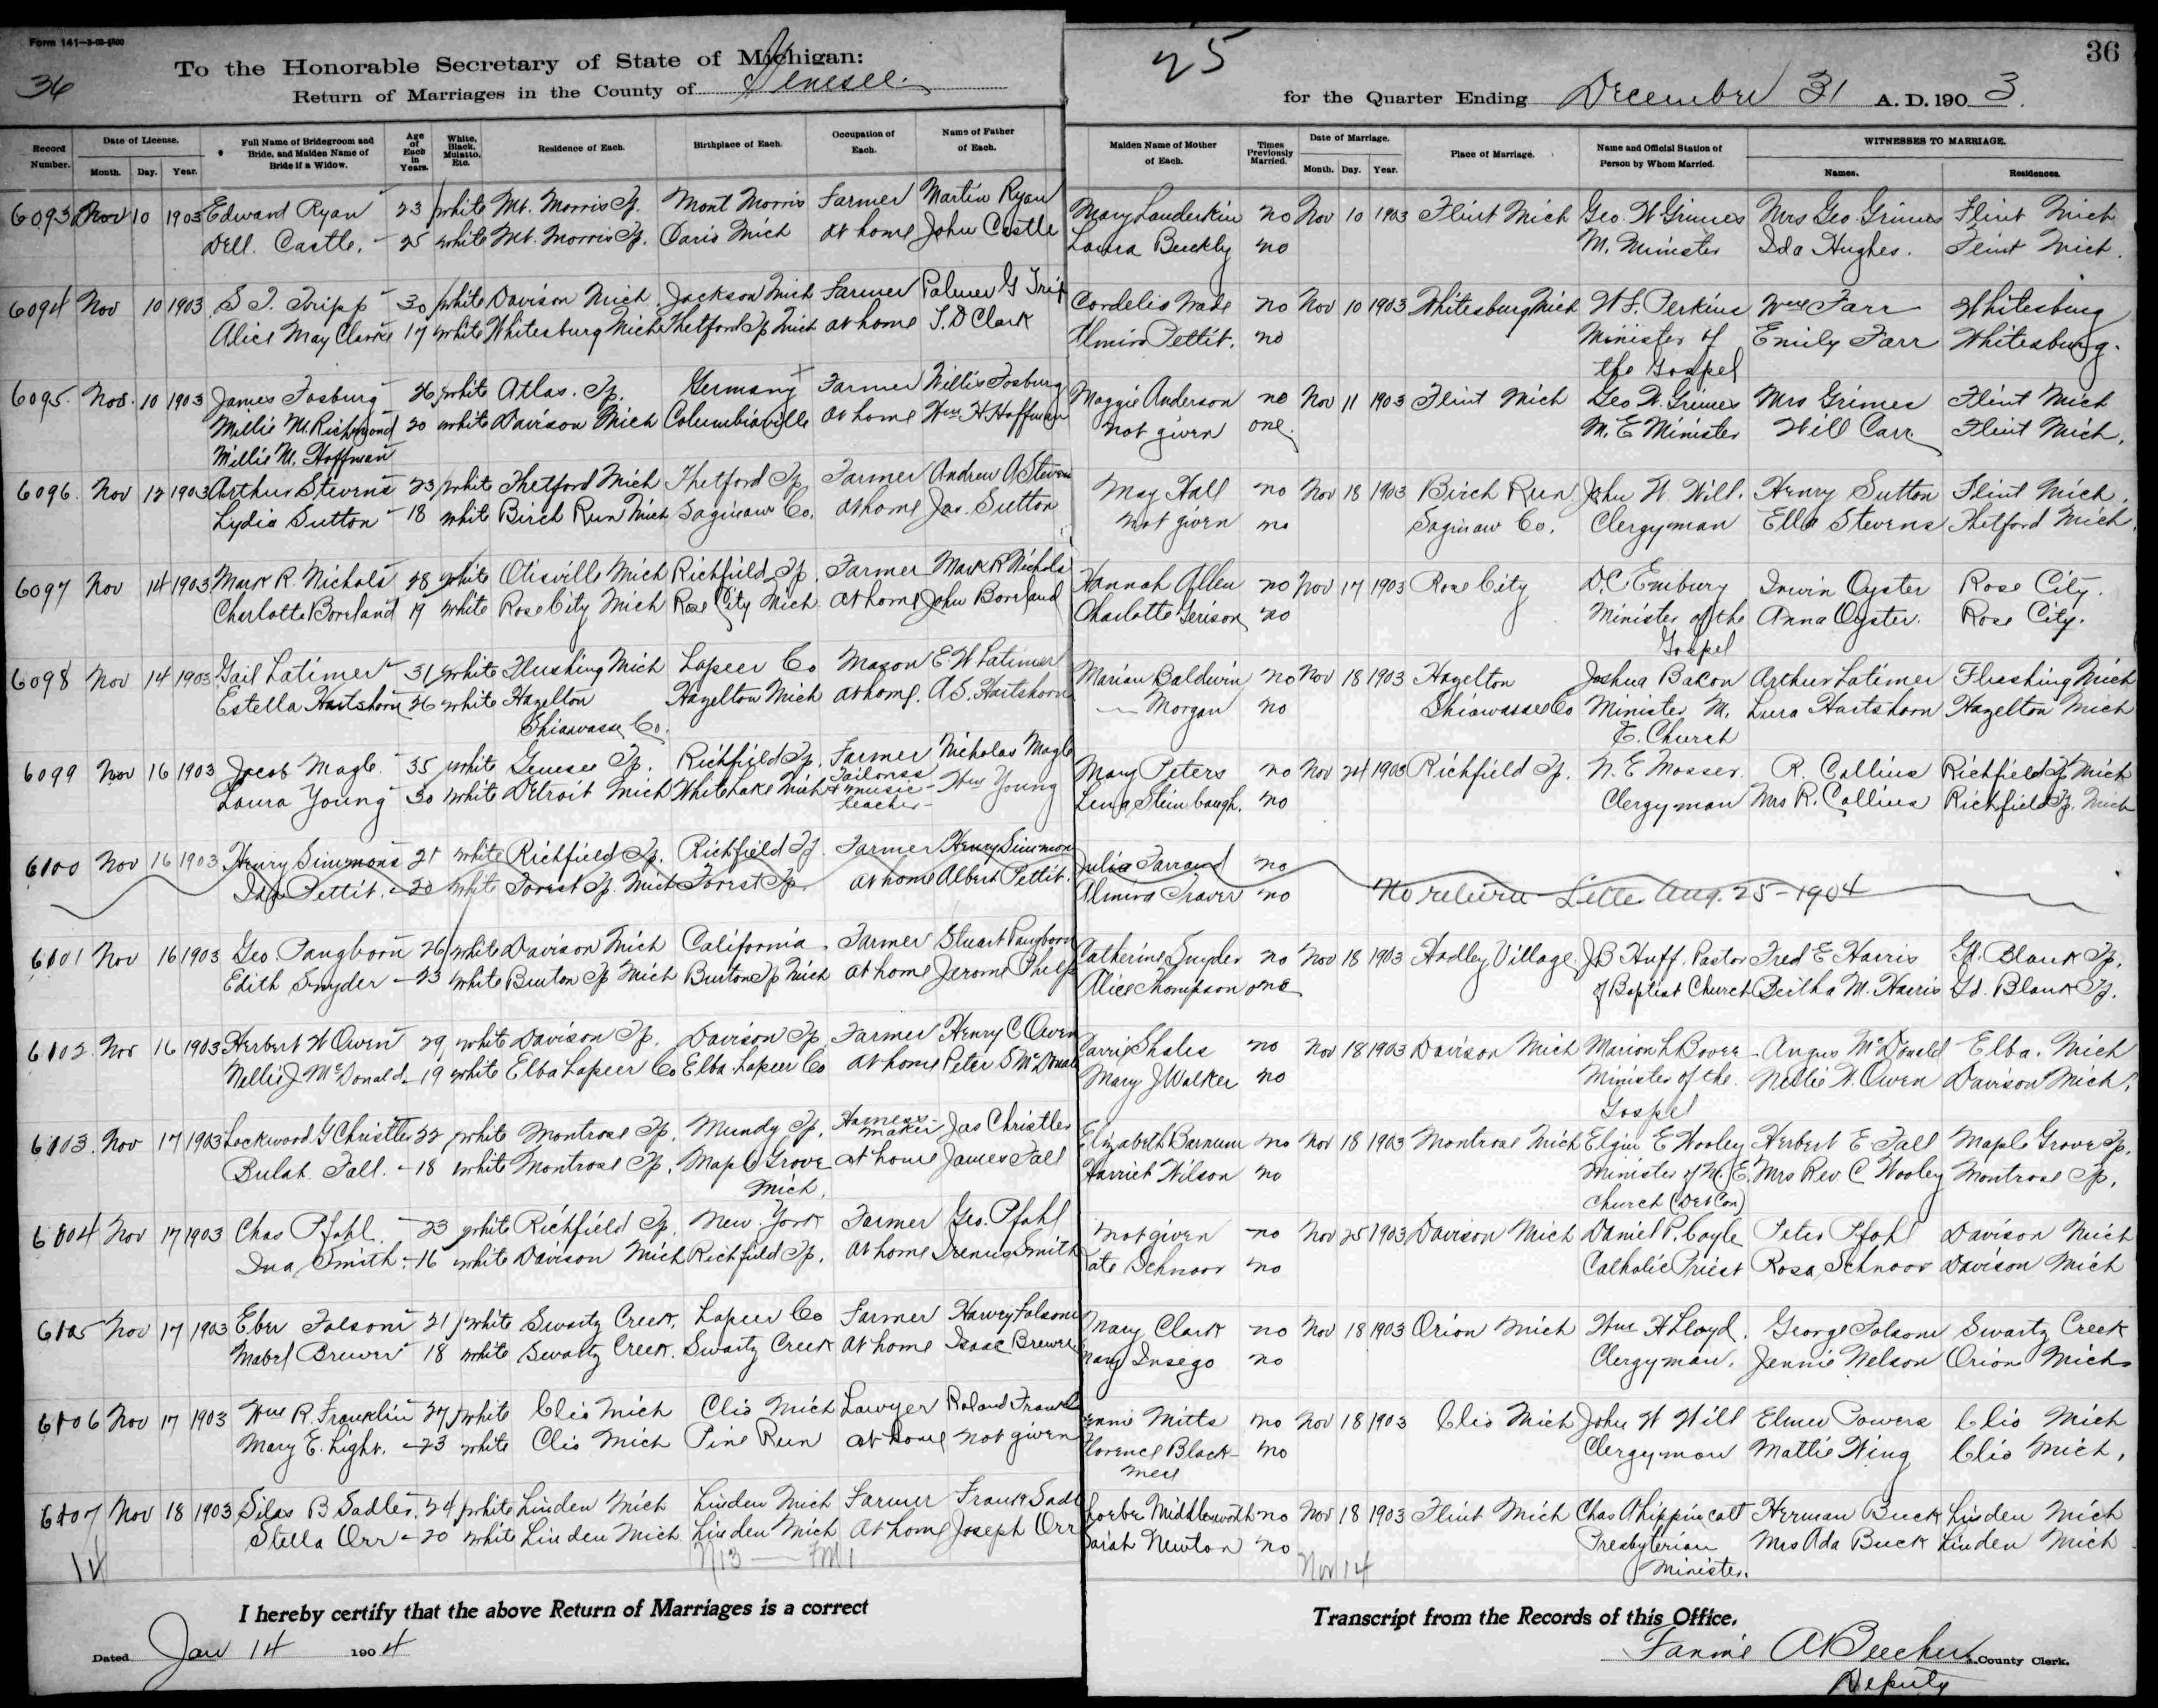 Form 141-3-03-2500
36
To the Honorable Secretary of State of Michigan:
Return of Marriages in the County of Genesee
25
for the Quarter Ending December 31 A. D. 190 3.
36
Record Number. Date of License. Month. Day. Year. Full Name of Bridegroom and Bride, and Maiden Name of Bride if a Widow. Age of Each in Years. White, Black, Mulatto, Etc. Residence of Each. Birthplace of Each. Occupation of Each. Name of Father of Each. Maiden Name of Mother of Each. Times Previously Married. Date of Marriage. Month. Day. Year. Place of Marriage. Name and Official Station of Person by Whom Married. WITNESSES TO MARRIAGE. Names. Residences.
6093 Nov 10 1903 Edward Ryan 23 white Mt. Morris Tp. Mont Morris Farmer Martin Ryan Mary Lauderkin no Nov 10 1903 Flint Mich Geo. W Grimes Mrs Geo. Grimes Flint Mich
Dell. Castle. 25 white Mt. Morris Tp. Mich at home John Castle Laura Buckly no M. Minister Ida Hughes. Flint Mich.
6094 Nov 10 1903 S. T. Tripp 30 white Davison Mich Jackson Mich Farmer Palmer G Trip Cordelia Wade no Nov 10 1903 Whitesburg Mich W. F. Perkins Wm Farr Whitesburg
Alice May Clark 17 white Whitesburg Mich Thetford Tp Mich at home S. D Clark Almira Pettit. no Minister of Emily Farr Whitesburg.
the Gospel
6095. Nov. 10 1903 James Fosburg 26 white Atlas. Tp. Germany Farmer Willis Fosburg Maggie Anderson no Nov 11 1903 Flint Mich Geo W. Grimes Mrs Grimes Flint Mich
Millie M. Richmond 20 white Davison Mich Columbiaville at home Wm H. Hoffman not given one. M. E Minister Will Carr Flint Mich.
Millie M. Hoffman
6096. Nov 12 1903 Arthur Stevens 23 white Thetford Mich Thetford Tp. Farmer Andrew A Steven May Hall no Nov 18 1903 Birch Run John W. Will. Henry Sutton Flint Mich.
Lydia Sutton 18 white Birch Run Mich Saginaw Co. at home Jas. Sutton not given no Saginaw Co. Clergyman Ella Stevens Thetford Mich.
6097 Nov 14 1903 Mark R. Nichols 28 white Otisville Mich Richfield Tp. Farmer Mark R Nichols Hannah Allen no Nov 17 1903 Rose City D. C. Embury Irwin Oyster Rose City.
Charlotte Boreland 19 white Rose City Mich Rose City Mich at home John Boreland Charlotte no Minister of the Anna Oyster. Rose City.
Gospel
6098 Nov 14 1903 Gail Latimer 31 white Flushing Mich Lapeer Co Mason E. W Latimer Marian Baldwin no Nov 18 1903 Hazelton Joshua Bacon Arthur Latimer Flushing Mich
Estella Hartshorn 26 white Hazelton Hazelton Mich at home. A. S. Hartshorn — Morgan no Shiawassee Co Minister M. Lura Hartshorn Hazelton Mich
Shiawassee Co. E. Church
6099 Nov 16 1903 Jacob Magle 35 white Genesee Tp. Richfield Tp. Farmer Nicholas Magle Mary Peters no Nov 24 1903 Richfield Tp. N. E Mosser. R. Collins Richfield Tp Mich
Laura Young 30 white Detroit Mich White Lake Mich Tailoress & music teacher Wm Young Lena Steinbaugh. no Clergyman Mrs R. Collins Richfield Tp. Mich
6100 Nov 16 1903 Henry Simmons 21 white Richfield Tp. Richfield Tp. Farmer Henry Simmon Julia Farrand no
Ida Pettit. 20 white Forest Tp. Mich Forrest Tp. at home Albert Pettit. Almira Traver no No return Letter Aug. 25 - 1904
6101 Nov 16 1903 Geo. Pangborn 26 white Davison Mich California. Farmer Stuart Pangborn Catherine Snyder no Nov 18 1903 Hadley Village. J B Huff. Pastor Fred E Harris Gd. Blank Tp.
Edith Snyder 23 white Burton Tp Mich Burton Tp Mich at home Jerome Phelp Alice Thompson one of Baptist Church Bertha M. Harris Gd. Blank Tp.
6102. Nov 16 1903 Herbert W Owen 29 white Davison Tp. Davison Tp. Farmer Henry C Owen Carrie Shales no Nov 18 1903 Davison Mich Marion L Bovee. Angus McDonald Elba. Mich
Nellie J McDonald. 19 white Elba Lapeer Co Elba. Lapeer Co at home Peter S McDonald Mary J Walker no Minister of the. Nettie W. Owen Davison Mich.
Gospel
6103. Nov 17 1903 Lockwood G Christler 22 white Montrose Tp. Mundy Tp. Harness maker Jas Christler Elizabeth Barnum no Nov 18 1903 Montrose Mich Elgin E Wooley Herbert E Fall Maple Grove Tp.
Bulah Fall. 18 white Montrose Tp. Maple Grove at home James Fall Harriet Wilson no Minister of M. E. Mrs Rev. C Wooley Montrose Tp.
Mich. Church (Det Con)
6104 Nov 17 1903 Chas Pfahl. 23 white Richfield Tp. New York Farmer Geo. Pfahl not given no Nov 25 1903 Davison Mich Daniel P. Coyle Peter Pfahl Davison Mich
Ina Smith. 16 white Davison Mich Richfield Tp. at home Irenus Smith ate Schnoor no Catholic Priest Rosa Schnoor Davison Mich
6105 Nov 17 1903 Eber Folsom 21 white Swartz Creek. Lapeer Co Farmer Harvey Folsom Mary Clark no Nov 18 1903 Orion Mich Wm H Lloyd. George Folsom Swartz Creek
Mabel Brewer 18 white Swartz Creek. Swartz Creek at home Isaac Brewer Mary Insego no Clergyman. Jennie Nelson Orion Mich
6106 Nov 17 1903 Wm R. Franklin 27 white Clio Mich Clio Mich Lawyer Roland Frankl ennie Mitts no Nov 18 1903 Clio Mich John W Will Elmer Powers Clio Mich
Mary E. Light. 23 white Clio Mich Pine Run at home not given Florence Black- no Clergyman Mattie Wing Clio Mich.
mer
6107 Nov 18 1903 Silas B Sadler. 24 white Linden Mich Linden Mich Farmer Frank Sadl hoebe Middlesworth no Nov 18 1903 Flint Mich Chas A Lippincott Herman Buck Linden Mich
Stella Orr 20 white Linden Mich Linden Mich at home Joseph Orr Sarah Newton no Presbyterian Mrs Ada Buck Linden Mich
Minister.
14 Nov 14
I hereby certify that the above Return of Marriages is a correct Transcript from the Records of this Office.
Dated Jan 14 190 4
Fannie A Beecher County Clerk.
Deputy